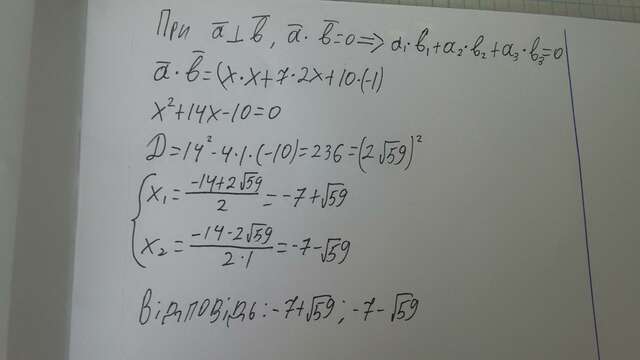 При a̅ ⊥ b̅, a̅ · b̅ = 0 => a₁·b₁+a₂·b₂+a₃·b₃=0
a̅ · b̅ = (x·x+7·2x+10·(-1)
x²+14x-10=0
D=14²-4·1·(-10)=236=(2√59)²
{ x₁ = (-14+2√59)/2 = -7+√59
x₂ = (-14-2√59)/(2·1) = -7-√59
Відповідь: -7+√59; -7-√59